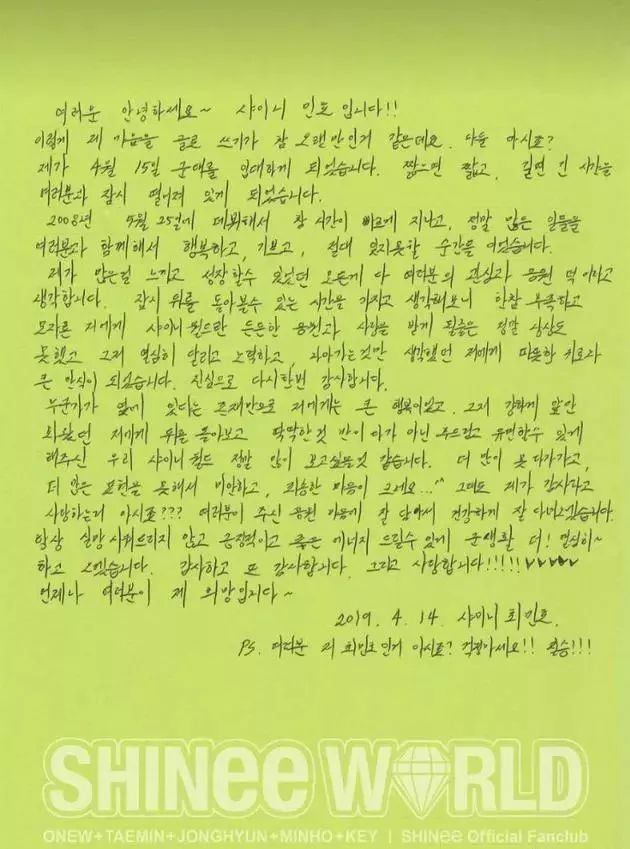 여러분 안녕하세요~ 샤이니 민호입니다!!
이렇게 제 마음을 글로 쓰기가 참 오랜만인거 같은데요. 다들 아시죠?
제가 4월 15일 군대를 입대하게 되었습니다. 짧으면 짧고, 길면 긴 시간을
여러분과 잠시 떨어져 있게 되었습니다.
2008년 5월 25일에 데뷔해서 참 시간이 빠르게 지나고, 정말 많은 일들을
여러분과 함께해서 행복하고, 기쁘고, 절대 잊지못할 순간들 이었습니다.
제가 많은걸 느끼고 성장할수 있었던 모든게 다 여러분의 관심과 응원 덕이라고
생각합니다. 잠시 뒤를 돌아볼수 있는 시간을 가지고 생각해보니 한참 부족하고
모자른 저에게 샤이니월드란 든든한 응원과 사랑을 받게 될줄은 정말 상상도
못했고 그저 열심히 달리고 노력하고, 나아가는것만 생각했던 저에게 따뜻한 치료과
큰 안식이 되었습니다. 진심으로 다시한번 감사합니다.
누군가가 옆에 있다는 존재만으로 저에게는 큰 행복이었고. 그저 강하게 앞만
봐왔던 저에게 뒤를 돌아보고 딱딱한것 만이 다가 아닌 부드럽고 유연할수 있게
해주신 우리 샤이니월드 정말 많이 보고싶을것 같습니다. 더 많이 못 다가가고,
더 많은 표현을 못해서 미안하고, 죄송한 마음이 크네요...^^ 그래도 제가 감사하고
사랑하는거 아시죠??? 여러분이 주신 응원 마음에 잘 담아서 건강하게 잘 다녀오겠습니다.
항상 실망 시켜드리지 않고 긍정적이고 좋은 에너지 드릴수 있게 군생활 더! 열심히~
하고 오겠습니다. 감사하고 또 감사합니다. 그리고 사랑합니다!!!!!♥♥♥♥♥
언제나 여러분이 제 희망입니다~
2019. 4. 14. 샤이니 최민호.
PS. 여러분 저 최민호인거 아시죠? 걱정마세요!! 필승!!!
SHINee WORLD
ONEW+TAEMIN+JONGHYUN+MINHO+KEY | SHINee Official Fanclub